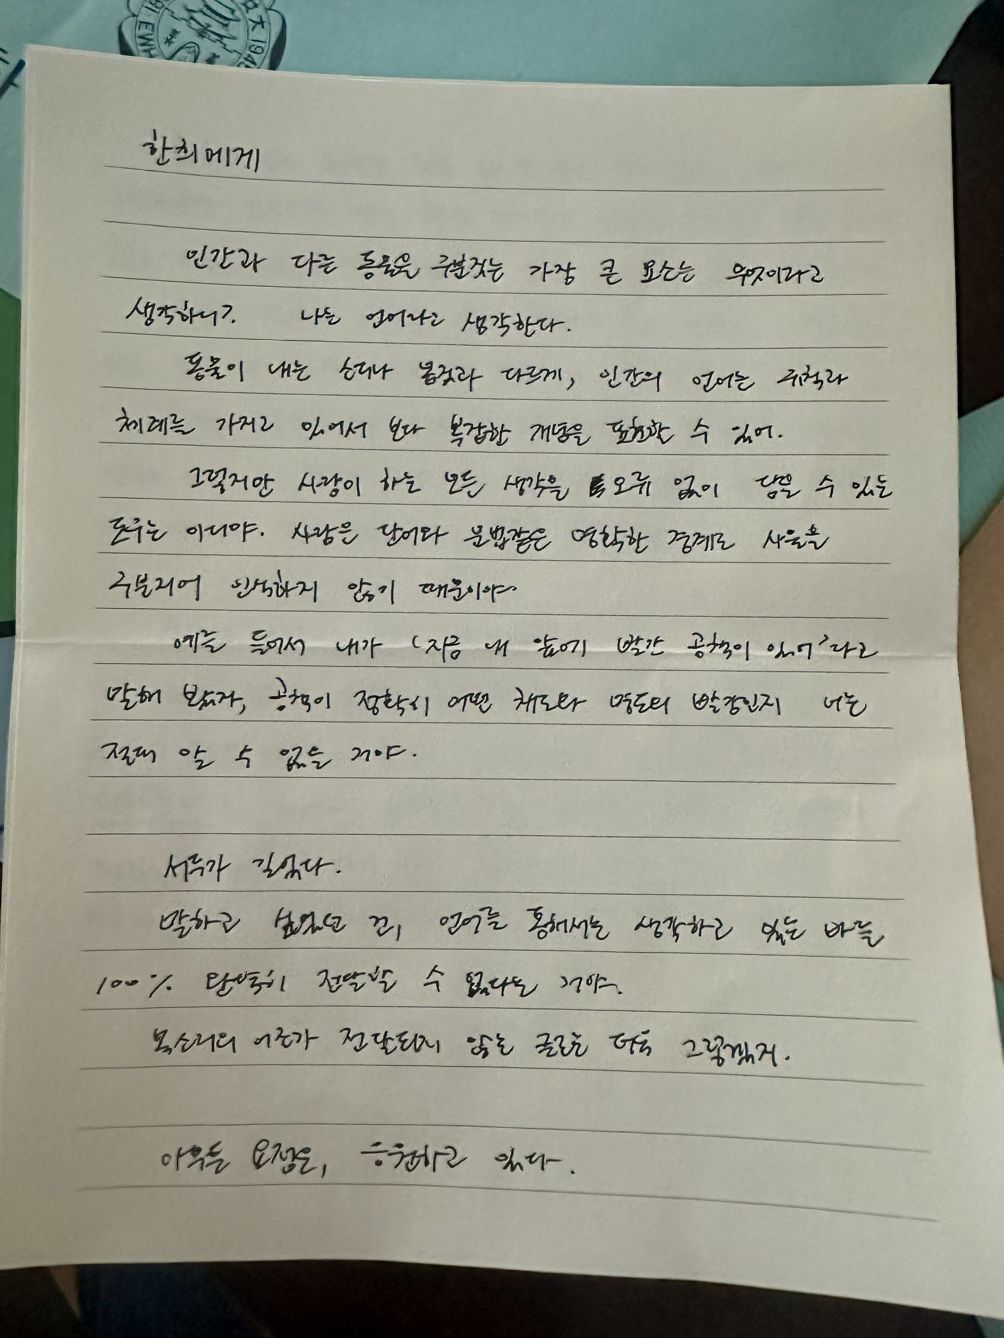 EWH
大 1945
한희에게
인간과 다른 동물을 구분짓는 가장 큰 요소는 무엇이라고
생각하니? 나는 언어라고 생각한다.
동물이 내는 소리나 몸짓과 다르게, 인간의 언어는 규칙과
체계를 가지고 있어서 보다 복잡한 개념을 표현할 수 있어.
그렇지만 사람이 하는 모든 생각을 오류 없이 담을 수 있는
도구는 아니야. 사람은 단어와 문법같은 명확한 경계로 사물을
구분지어 인식하지 않기 때문이야.
예를 들어서 내가 '지금 내 앞에 빨간 공책이 있어'라고
말해 봤자, 공책이 정확히 어떤 채도와 명도의 빨강인지 너는
절대 알 수 없을 거야.
서두가 길었다.
말하고 싶었던 건, 언어를 통해서는 생각하고 있는 바를
100% 완벽히 전달할 수 없다는 거야.
목소리의 어조가 전달되지 않는 글로는 더욱 그렇겠지.
아무튼 요점은, 응원하고 있다.